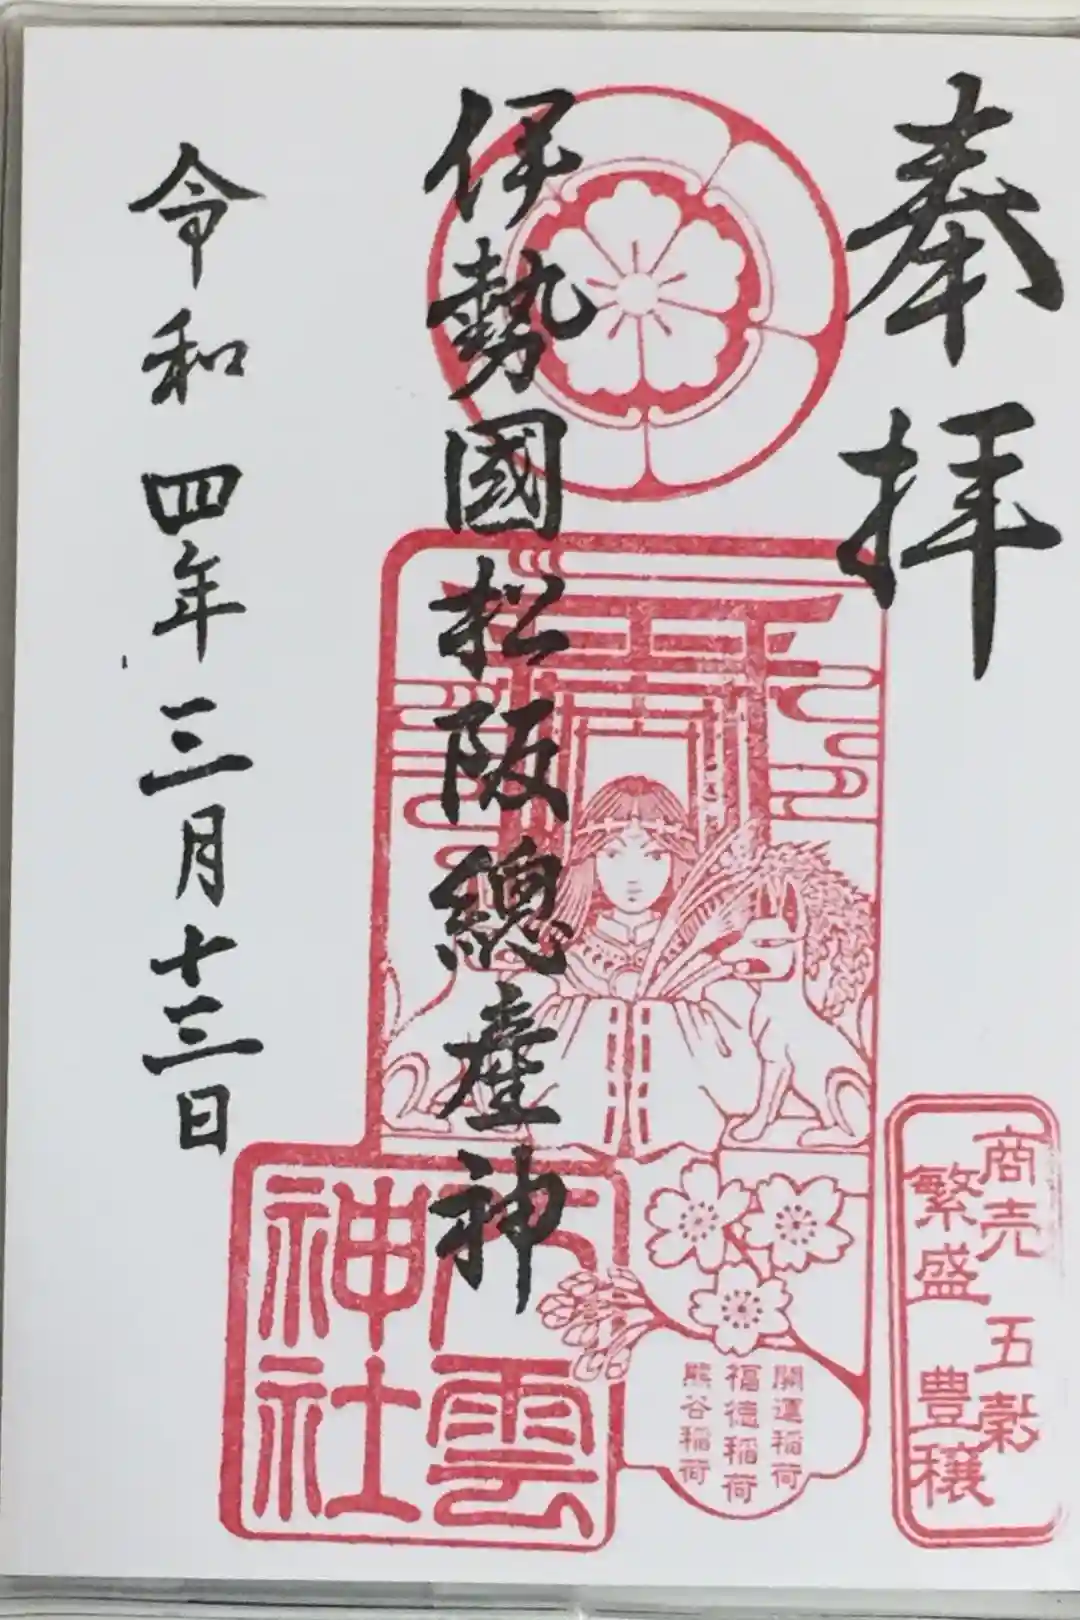 奉拝
伊勢國松阪總産神
令和四年三月十三日
八雲神社
開運稲荷
福徳稲荷
熊谷稲荷
商売繁盛
五穀豊穣